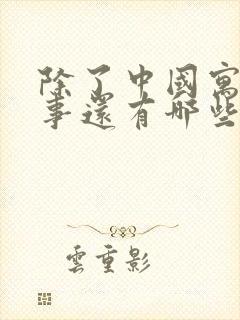 除了中國寓
事還有哪些
雲重影